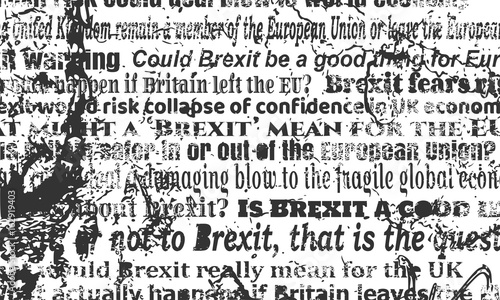 risk could your to world economy
United Kingdom remain a member of the European Union or leave the European
Warning. Could Brexit be a good thing for Eur
happen if Britain left the EU? Brexit fears ri
would risk collapse of confidence in UK econom
MIGHT A 'BREXIT' MEAN FOR THE EU
is safer in or out of the European Union?
damaging blow to the fragile global econ
about Brexit? IS BREXIT A GOOD
or not to Brexit, that is the quest
would Brexit really mean for the UK
actually happen if Britain leaves the